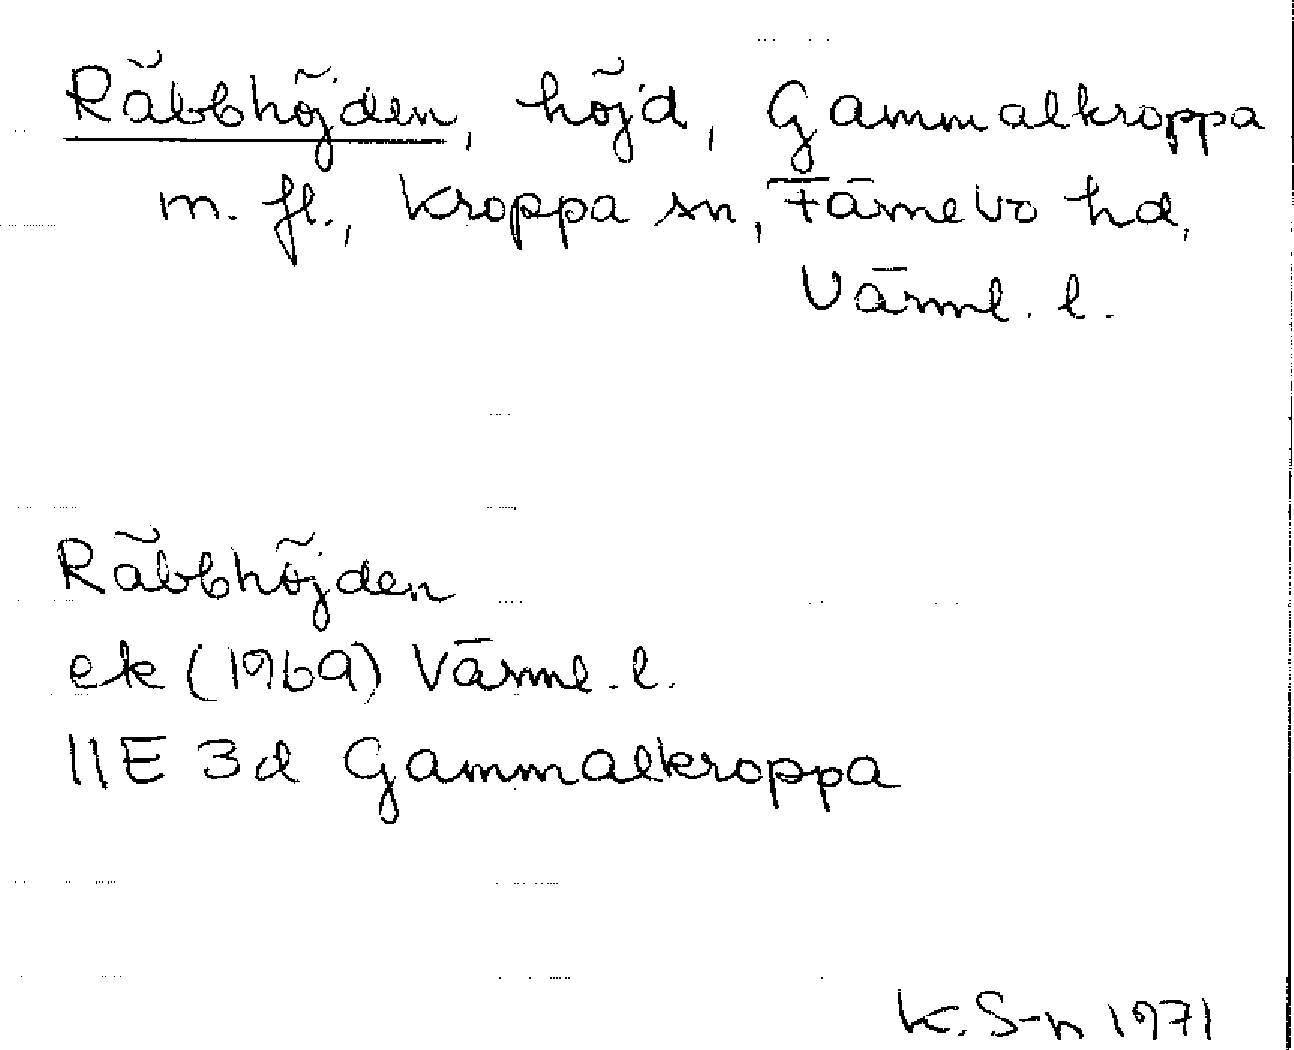 Räbbhöjden, höjd, Gammalkroppa
m. fl., Kroppa sn, Färnebo hd,
Värml. l.
Räbbhöjden
ek (1969) Värml. l.
11E 3d Gammalkroppa
K. S-n 1971